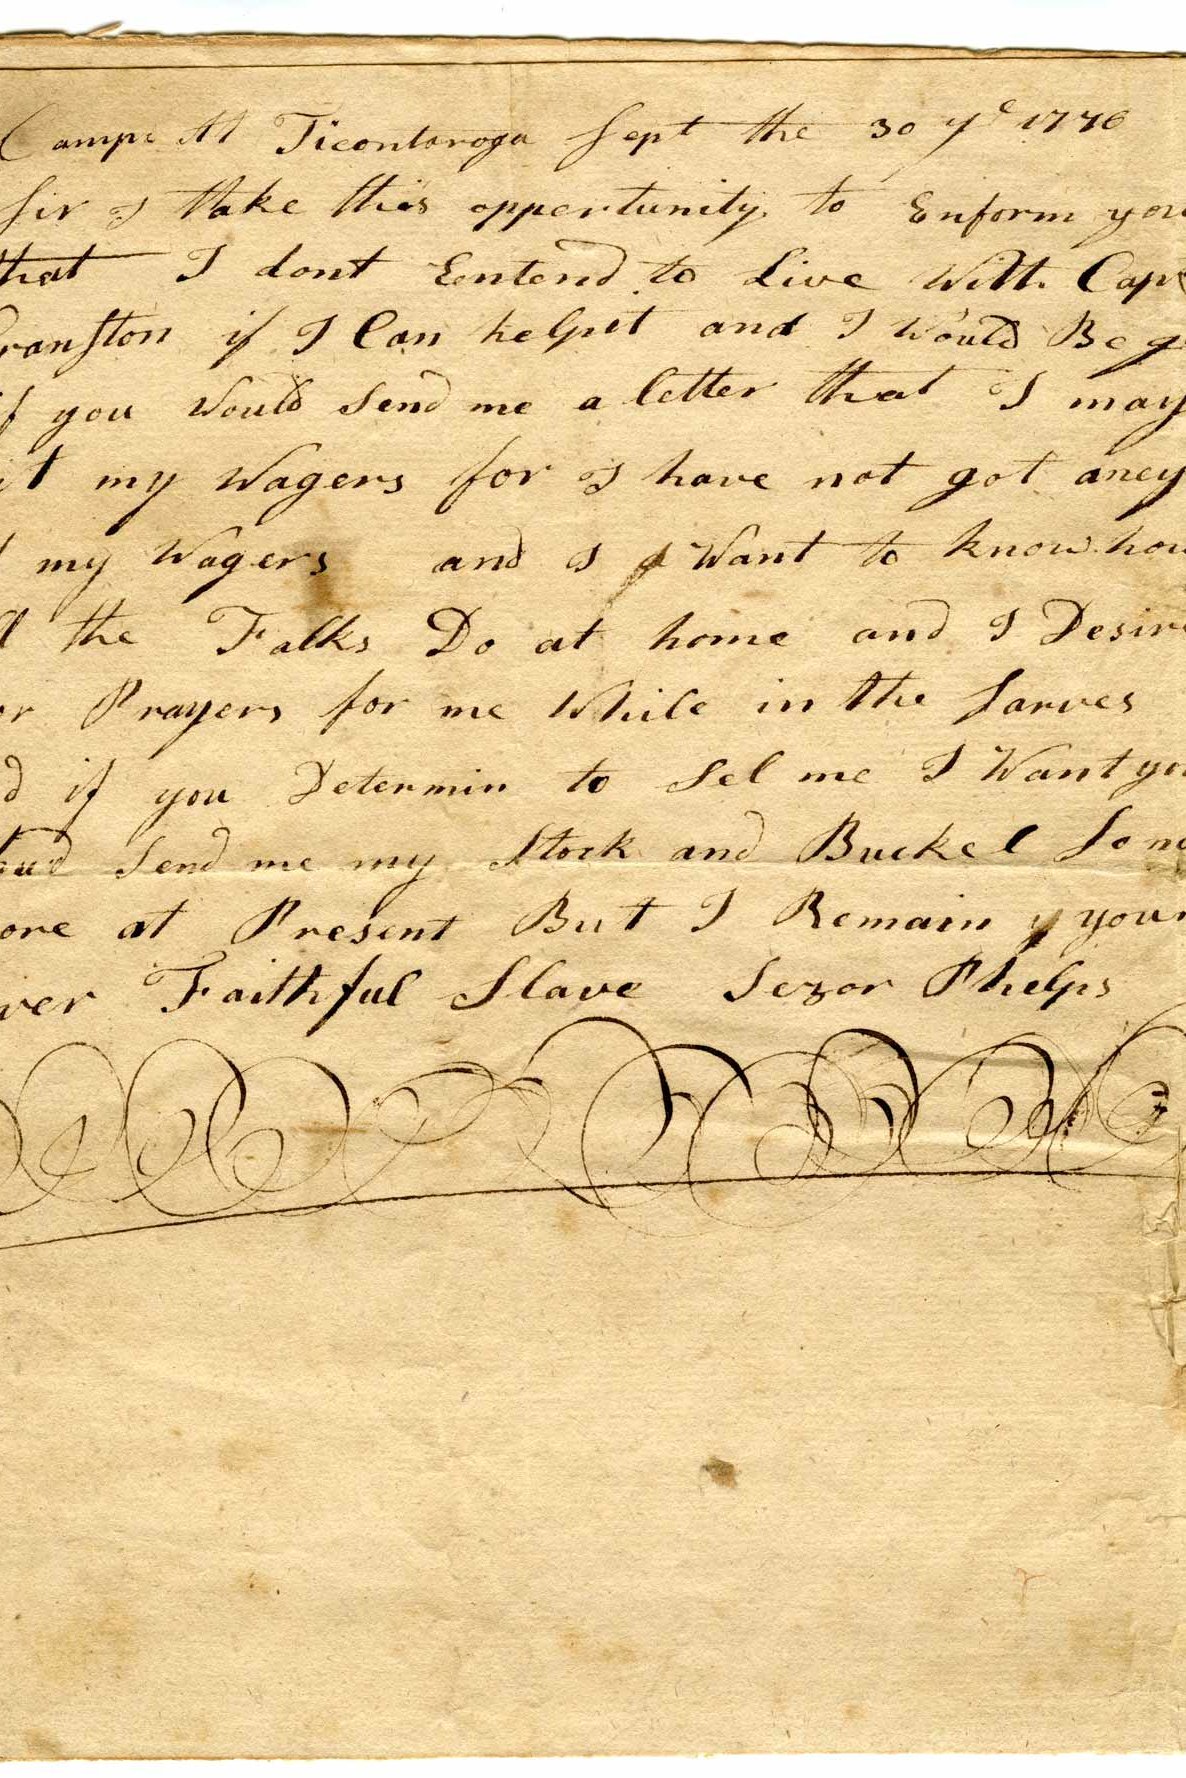 Campe At Ticontaroga Sept the 30 ye 1776
Sir I take this oppertunity to Enform you
that I dont Entend to Live With Capt
ranston if I Can helpit and I Would Be g
if you Would Send me a letter that I may
it my Wagers for I have not got aney
my Wagers and I Want to know how
ll the Falks Do at home and I Desire
or Prayers for me While in the Sarves
d if you Determin to Sel me I Want you
oud Send me my Stock and Buckel So no
ore at Present But I Remain your
ver Faithful Slave Sezor Phelps